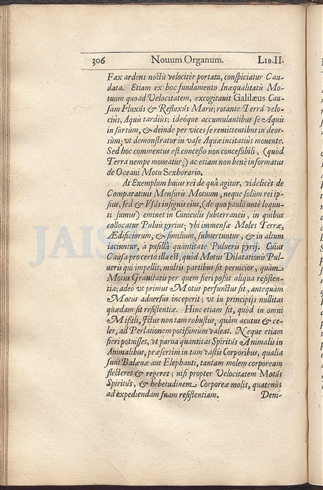 306 Novum Organum. LIB. II.
Fax ardens noctu velociter portata, conspiciatur Cau-
data. Etiam ex hoc fundamento Inæqualitatis Mo-
tuum quoad Velocitatem, excogitavit Galilæus Cau-
sam Fluxûs & Refluxûs Maris; rotante Terrâ velo-
ciùs, Aquis tardiùs; ideóque accumulantibus se Aquis
in sursum, & deinde per vices se remittentibus in deor-
sùm; ut demonstratur in vase Aquæ incitatiùs movente.
Sed hoc commentus est concesso non concessibili, (quòd
Terra nempe moveatur;) ac etiam non benè informatus
de Oceani Motu Sexhorario.
At Exemplum huius rei de quâ agitur, videlicèt de
Comparativis Mensuris Motuum, neque solùm rei ip-
sius, sed & Usûs insignis eius, (de quo paulò antè loquu-
ti sumus) eminet in Cuniculis subterraneis, in quibus
collocatur Pulvis pyrius; vbi immensæ Moles Terræ,
Ædificiorum, & similium, subvertuntur, & in altum
iaciuntur, à pusillâ quantitate Pulveris pyrij. Cuius
Causa pro certo illa est, quòd Motus Dilatationis Pul-
ueris qui impellit, multis partibus sit pernicior, quàm
Motus Grauitatis per quem fieri possit aliqua resisten-
tia; adeò vt primus Motus perfunctus sit, antequàm
Motus aduersus inceperit; vt in principijs nullitas
quædam sit resistentiæ. Hinc etiam fit, quòd in omni
Missili, Ictus non tam robustus, quàm acutus & ce-
ler, ad Perlationem potissimùm valeat. Neque etiam
fieri potuisset, vt parua quantitas Spiritûs Animalis in
Animalibus, præsertim in tam vastis Corporibus, qualia
sunt Balænæ aut Elephanti, tantam molem corpoream
flecteret & regeret; nisi propter Velocitatem Motûs
Spiritûs, & hebetudinem Corporeæ molis, quatenùs
ad expediendam suam resistentiam.
Deni-